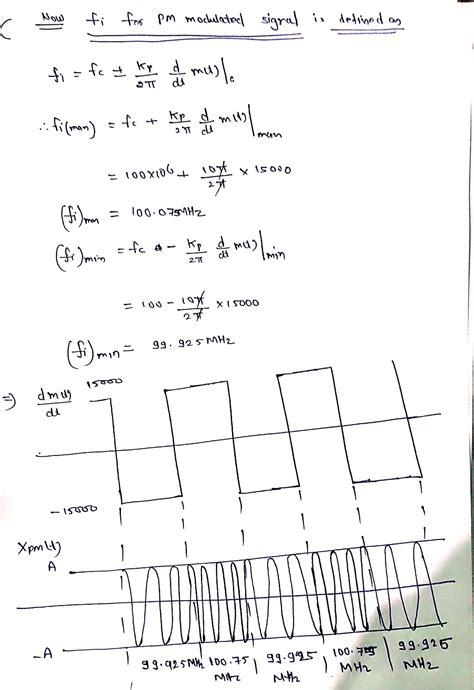 Now fi for PM modulated signal is defined as
fi = fc ± Kp/2π d/dt m(t)|c
∴ fi(max) = fc + Kp/2π d/dt m(t)|max
= 100×10⁶ + 10π/2π × 15000
(fi)max = 100.075MHz
(fi)min = fc - Kp/2π d/dt m(t)|min
= 100 - 10π/2π × 15000
(fi)min = 99.925MHz
⇒ dm(t)/dt 15000
-15000
Xpm(t)
A
-A
99.925MHz 100.75 MHz 99.925 MHz MHz 99.925 MHz